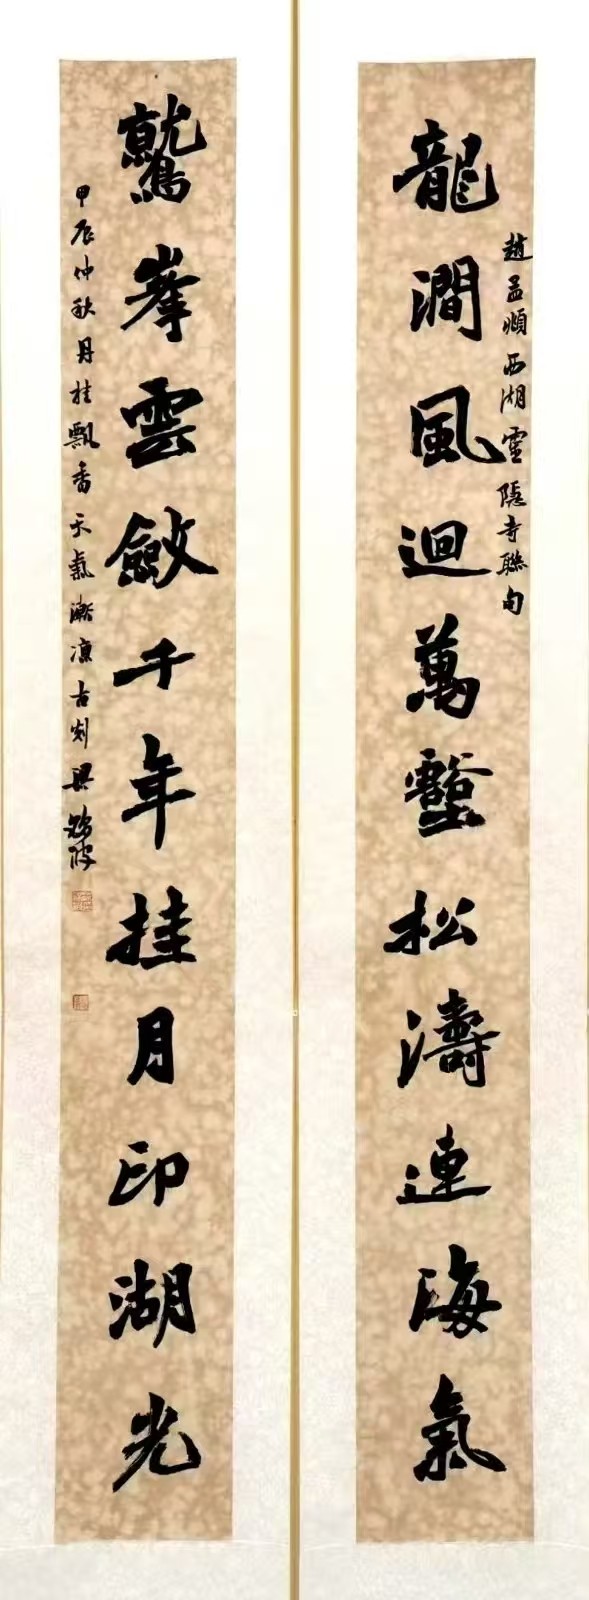 龍澗風迴萬壑松濤連海氣
趙孟頫西湖靈隱寺聯句
鷲峯雲斂千年桂月印湖光
甲辰仲秋丹桂飄香天氣漸涼古剡